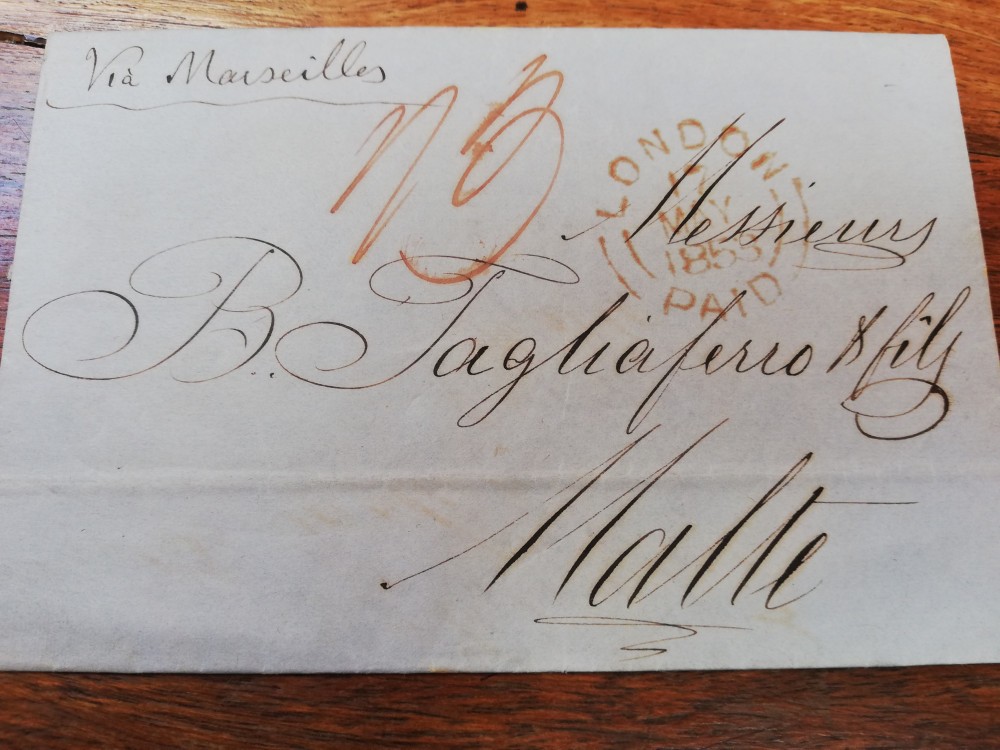 Viâ Marseilles
LONDON
MY
PAID
Messieurs
B. Tagliaferro & fils
Malte